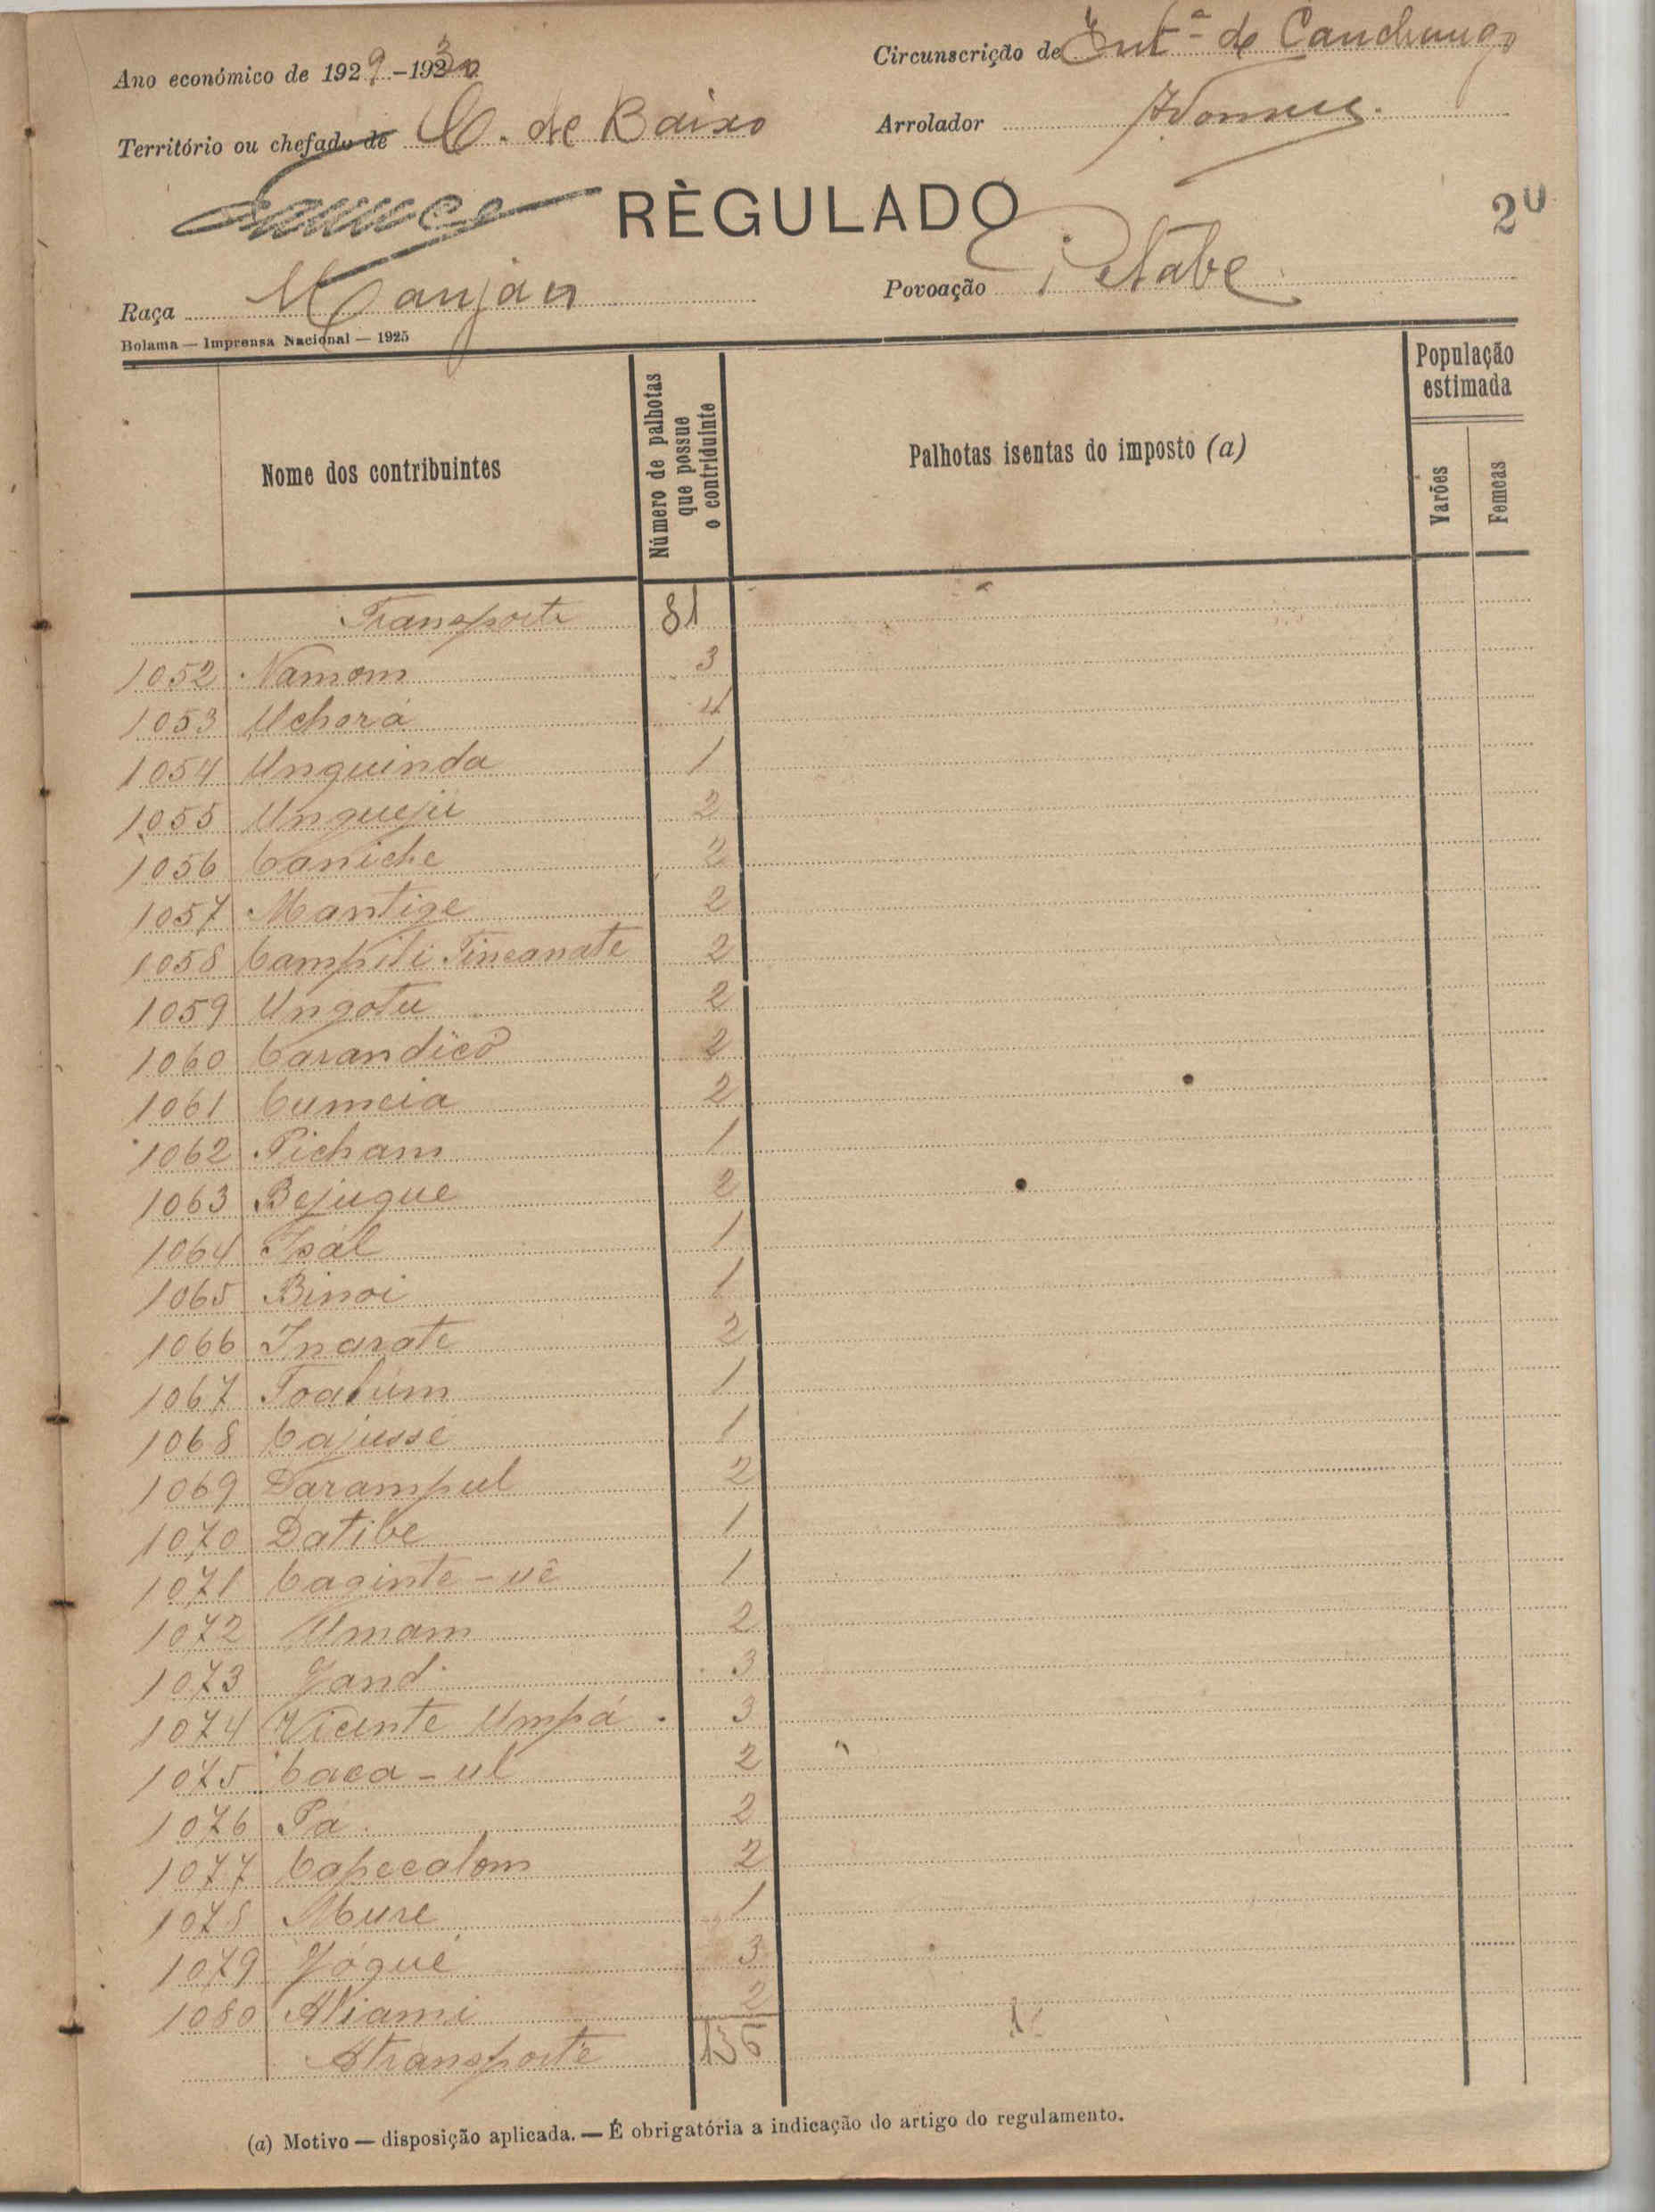 Ano económico de 1929-1930
Circunscrição de Int.ª de Canchungo
Território ou chefado de C. de Baixo
Arrolador
RÈGULADO
20
Raça Manjaca
Povoação Petabe
Bolama — Imprensa Nacional — 1925
Nome dos contribuintes
Número de palhotas que possue o contriduinte
Palhotas isentas do imposto (a)
População estimada
Varões
Femeas
Transporte 81
1052 Namom 3
1053 Uchorá 4
1054 Unguinda 1
1055 Unguejú 2
1056 Caniche 2
1057 Mantige 2
1058 Campili Fincanate 2
1059 Ungotu 2
1060 Carandicô 2
1061 Cumeia 2
1062 Picham 1
1063 Bejugue 2
1064 Isál 1
1065 Binoi 1
1066 Inarate 2
1067 Toalim 1
1068 Cajussé 1
1069 Darampul 2
1070 Datibe 1
1071 Caginte-uê 1
1072 Umam 2
1073 Jand. 3
1074 Vicente Umpá 3
1075 Caca-ul 2
1076 Pa. 2
1077 Capecalom 2
1078 Mure 1
1079 Jógué 3
1080 Aliami 2
A transporte 136
(a) Motivo — disposição aplicada. — É obrigatória a indicação do artigo do regulamento.